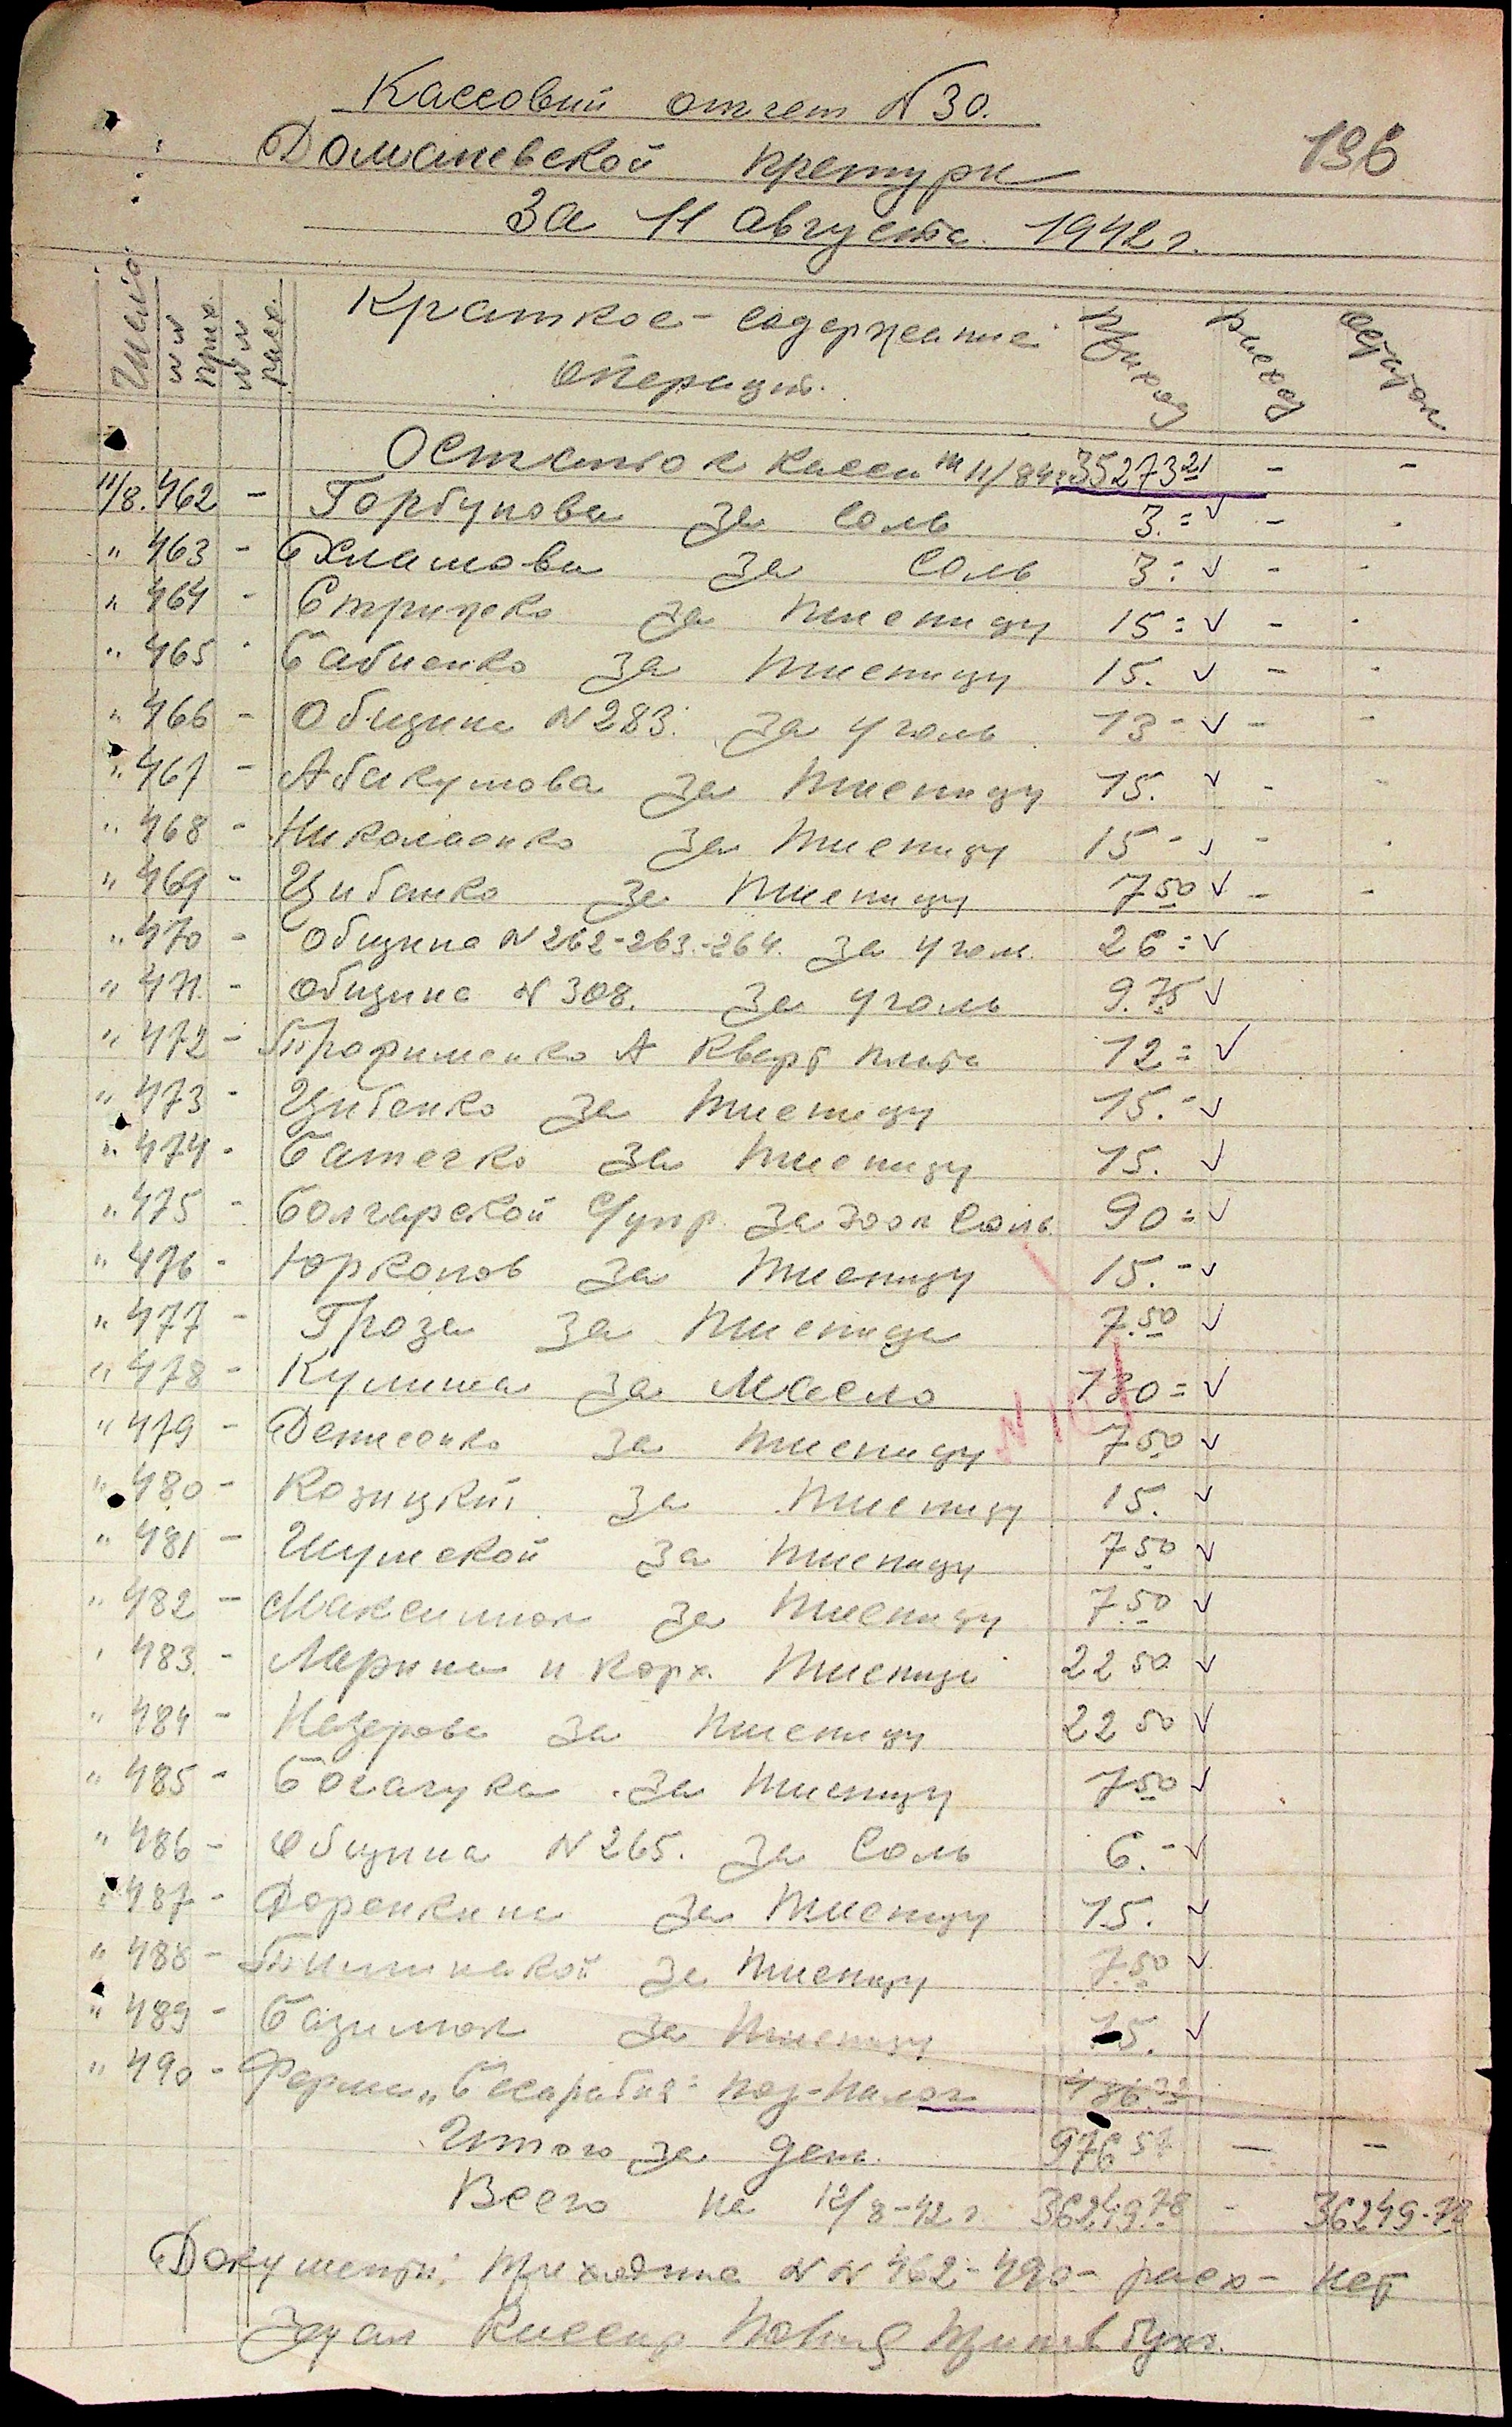 Кассовый отчет N 30.
196
Доманевской претуры
За 11 августа 1942 г.
Число
N N прих.
N N расх.
Краткое содержание операций.
Приход
Расход
Остаток
Остаток кассы на 11/8 42г 35273 21 - -
11/8. 462 - Горбунова за соль 3.= ✓ - -
" 463 - за соль 3: ✓ - -
" 464 - Стрижко за пшеницу 15= ✓ - -
" 465 - Бабиенко за пшеницу 15. ✓ - -
" 466 - Община N 283. за уголь 13- ✓ - -
" 467 - Абакумова за пшеницу 15. ✓ - -
" 468 - Николаенко за пшеницу 15- ✓ - -
" 469 - Цибенко за пшеницу 7 50 ✓ - -
" 470 - Община N 262-263-264. за угол. 26= ✓
" 471. - Община N 308. за уголь 9.75 ✓
" 472 - Трофименко А кварт плата 12= ✓
" 473 - Цибенко за пшеницу 15.- ✓
" 474 - Батечко за пшеницу 15. ✓
" 475 - Болгарской с/упр. за соль 90= ✓
" 476 - Юрконов за пшеницу 15.- ✓
" 477 - Гроза за пшеницу 7.50 ✓
" 478 - Кулиша за масло ✓
" 479 - Денисенко за пшеницу 7 50 ✓
" 480 - Козицкий за пшеницу 15. ✓
" 481 - Шумской за пшеницу 7 50 ✓
" 482 - Максимюк за пшеницу 7.50 ✓
" 483. - Ларина и Корх. пшеница 22 50 ✓
" 484 - Назарова за пшеницу 22 50 ✓
" 485 - Богачука за пшеницу 7 50 ✓
" 486 - Община N 265. за соль 6.- ✓
" 487 - Доренкина за пшеницу 15. ✓
" 488 - за пшеницу 7.50 ✓
" 489 - Базимок за пшеницу 15. ✓
" 490 - Ферма "Бесарабия" под-налог
Итого за день 976 57 - -
Всего на 12/8-42 г. 36249.78 - 36249-78
Документы: приходные N N 462-490- расх- нет
Здал Кассир